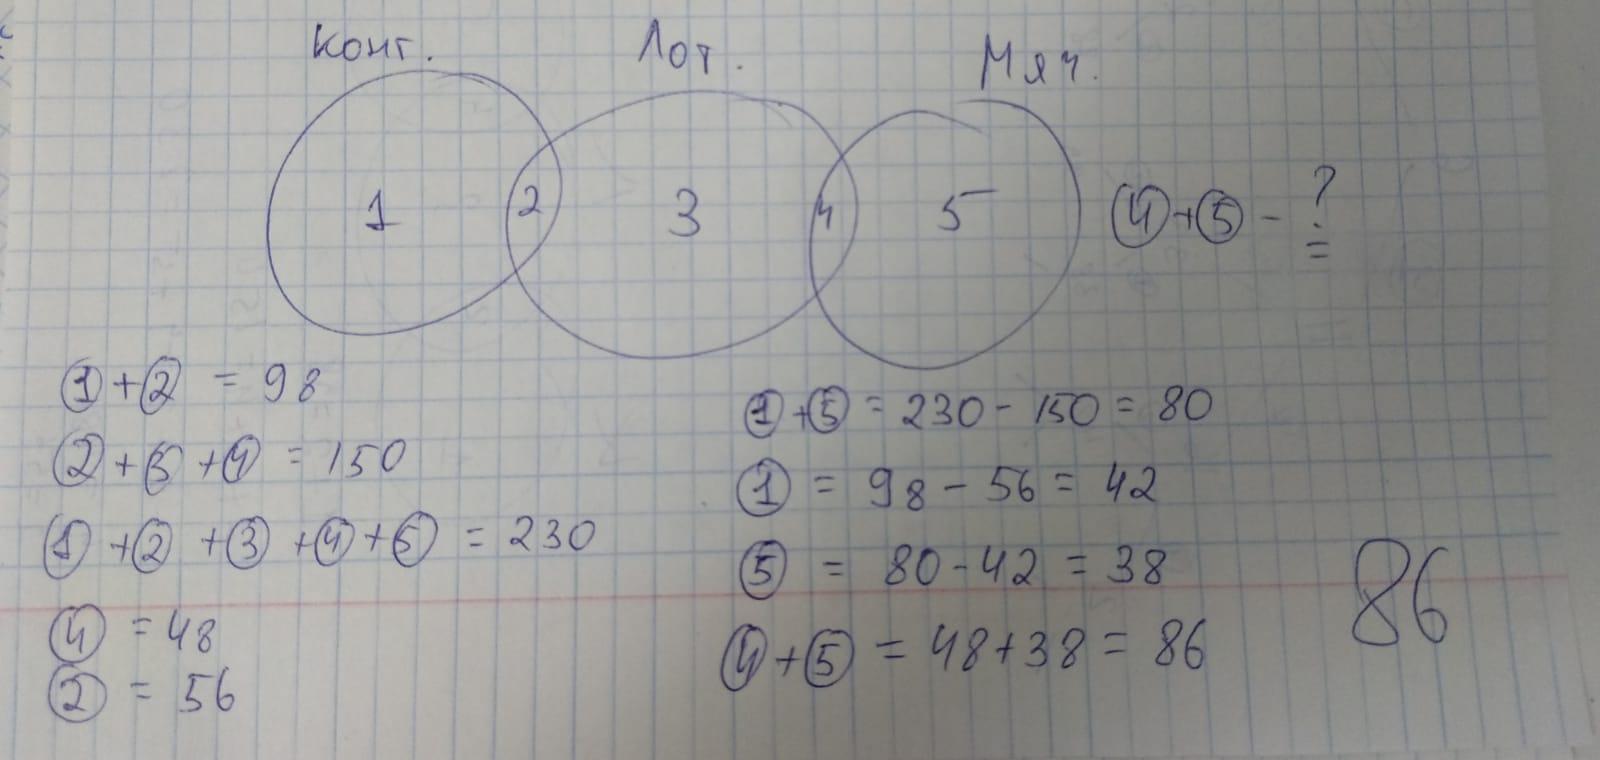 Конт. Лот. Мяч.
1 2 3 4 5 ④+⑤ - ?
①+② = 98
②+③+④ = 150
①+②+③+④+⑤ = 230
④ = 48
② = 56
①+⑤ = 230 - 150 = 80
① = 98 - 56 = 42
⑤ = 80 - 42 = 38
④+⑤ = 48+38 = 86
86